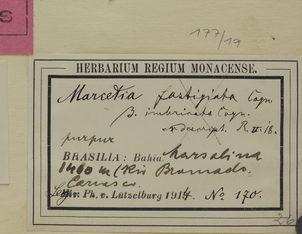 S
177/19
HERBARIUM REGIUM MONACENSE.
Marcetia fastigiata Cogn.
β. imbricata Cogn.
purpur
BRASILIA: Bahia: Marsalina
1400 m (Rio Brumado.
Leg. Ph. v. Lützelburg 1914. No 170.
26